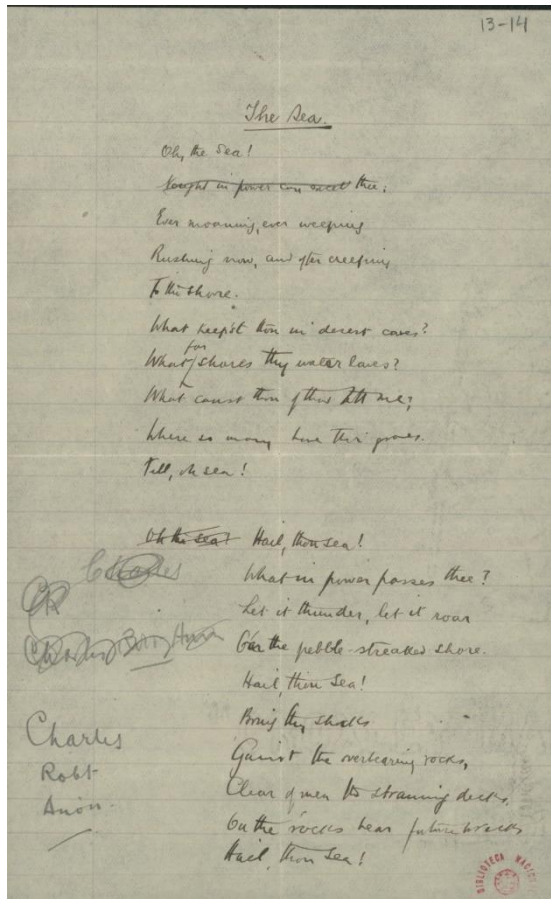 13-14
The Sea.
Oh, the Sea!
Nought in power can excel thee;
Ever moaning, ever weeping
Rushing now, and after creeping
To the shore.
What keep'st thou in desert caves?
What far shores thy water laves?
What canst thou of that tell me;
Where so many have their graves.
Tell, oh sea!
Oh the sea! Hail, thou sea!
What in power passes thee?
Let it thunder, let it roar
O'er the pebble-streaked shore.
Hail, thou Sea!
Charles
CR
Charles
Bring thy shocks
Gainst the overbearing rocks,
Clear of men the straining decks,
On the rocks hear future wrecks
Hail, thou Sea!
Charles
Robt
Anon.
BIBLIOTECA NACIONAL